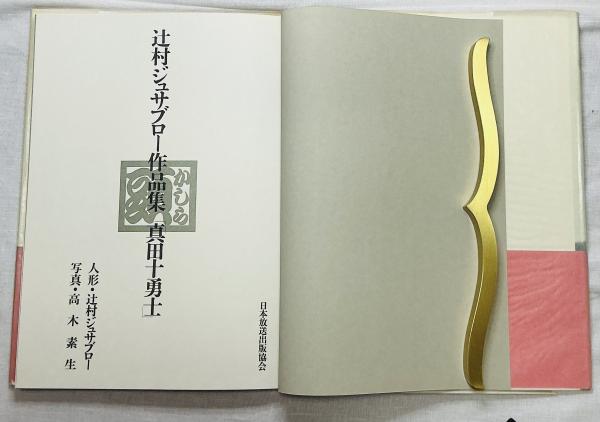 辻村ジュサブロー作品集「真田十勇士」
かしら
人形・辻村ジュサブロー
写真・高木素生
日本放送出版協会